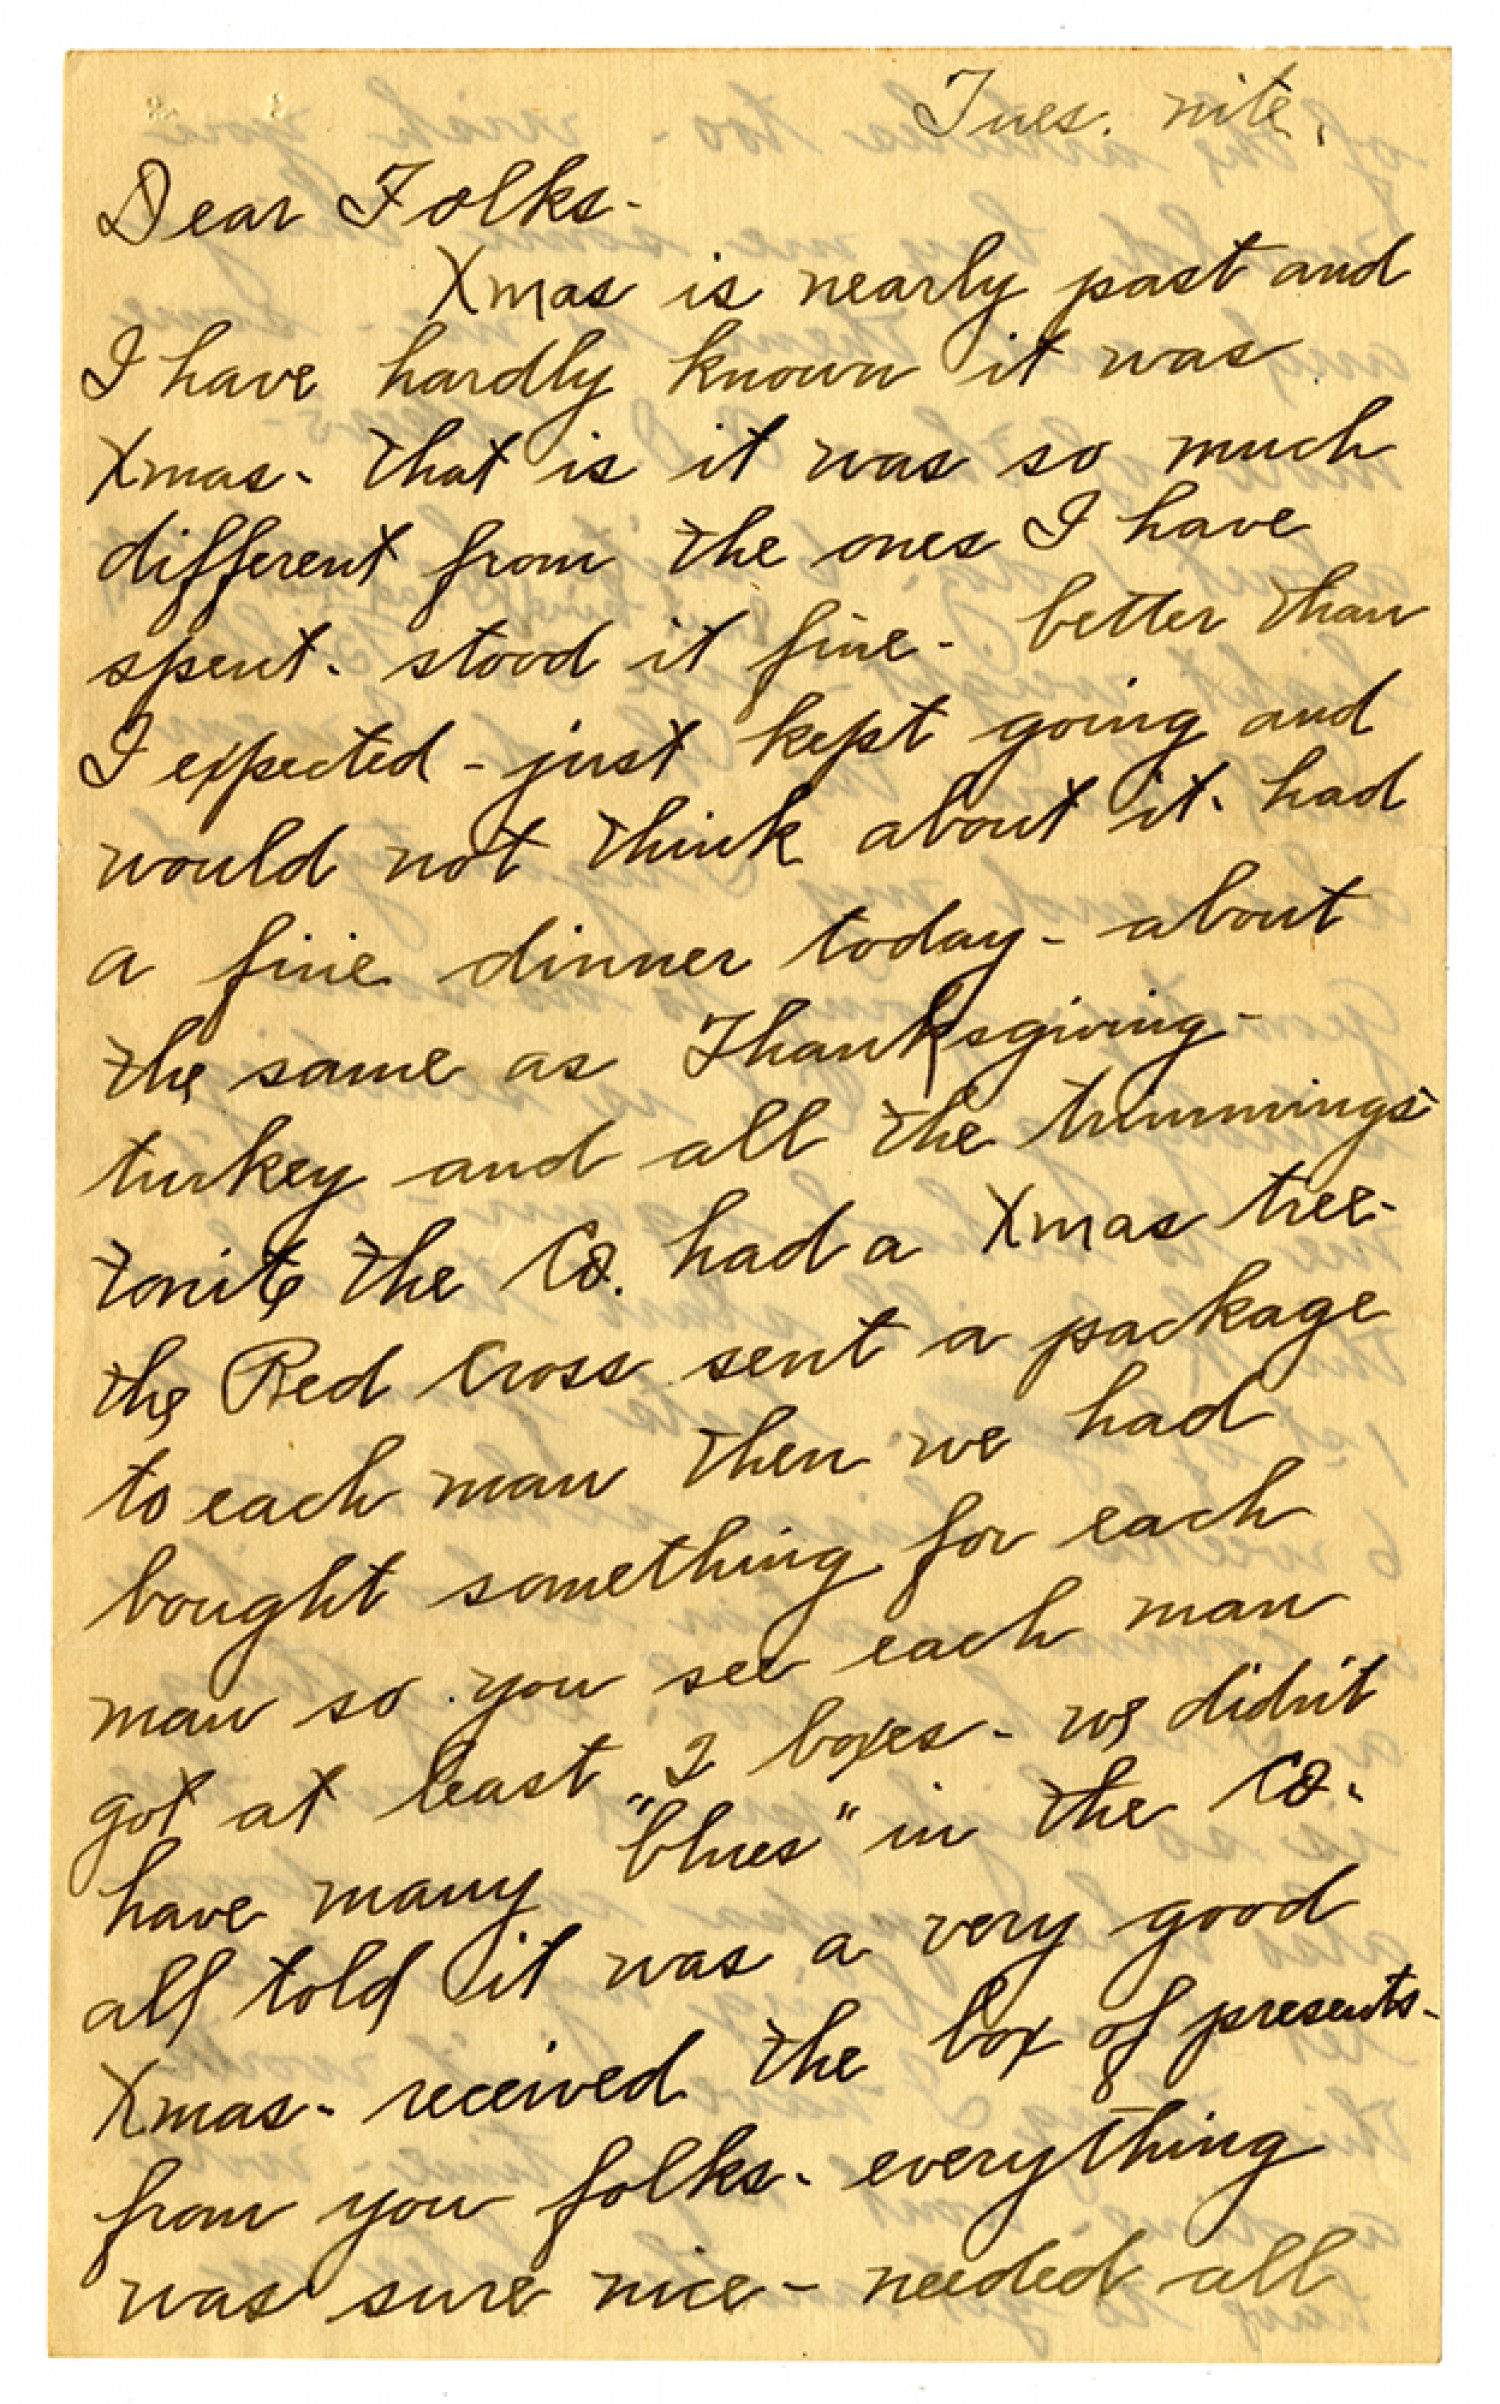 Tues. nite.
Dear Folks-
Xmas is nearly past and
I have hardly known it was
Xmas- that is it was so much
different from the ones I have
spent- stood it fine- better than
I expected - just kept going and
would not think about it- had
a fine dinner today - about
the same as Thanksgiving-
turkey and all the trimmings-
tonite the Co. had a Xmas tree-
the Red Cross sent a package
to each man then we had
bought something for each
man so you see each man
got at least 2 boxes - we didn't
have many "blues" in the Co.
all told it was a very good
Xmas- received the box of presents-
from you folks- everything
was sure nice - needed all